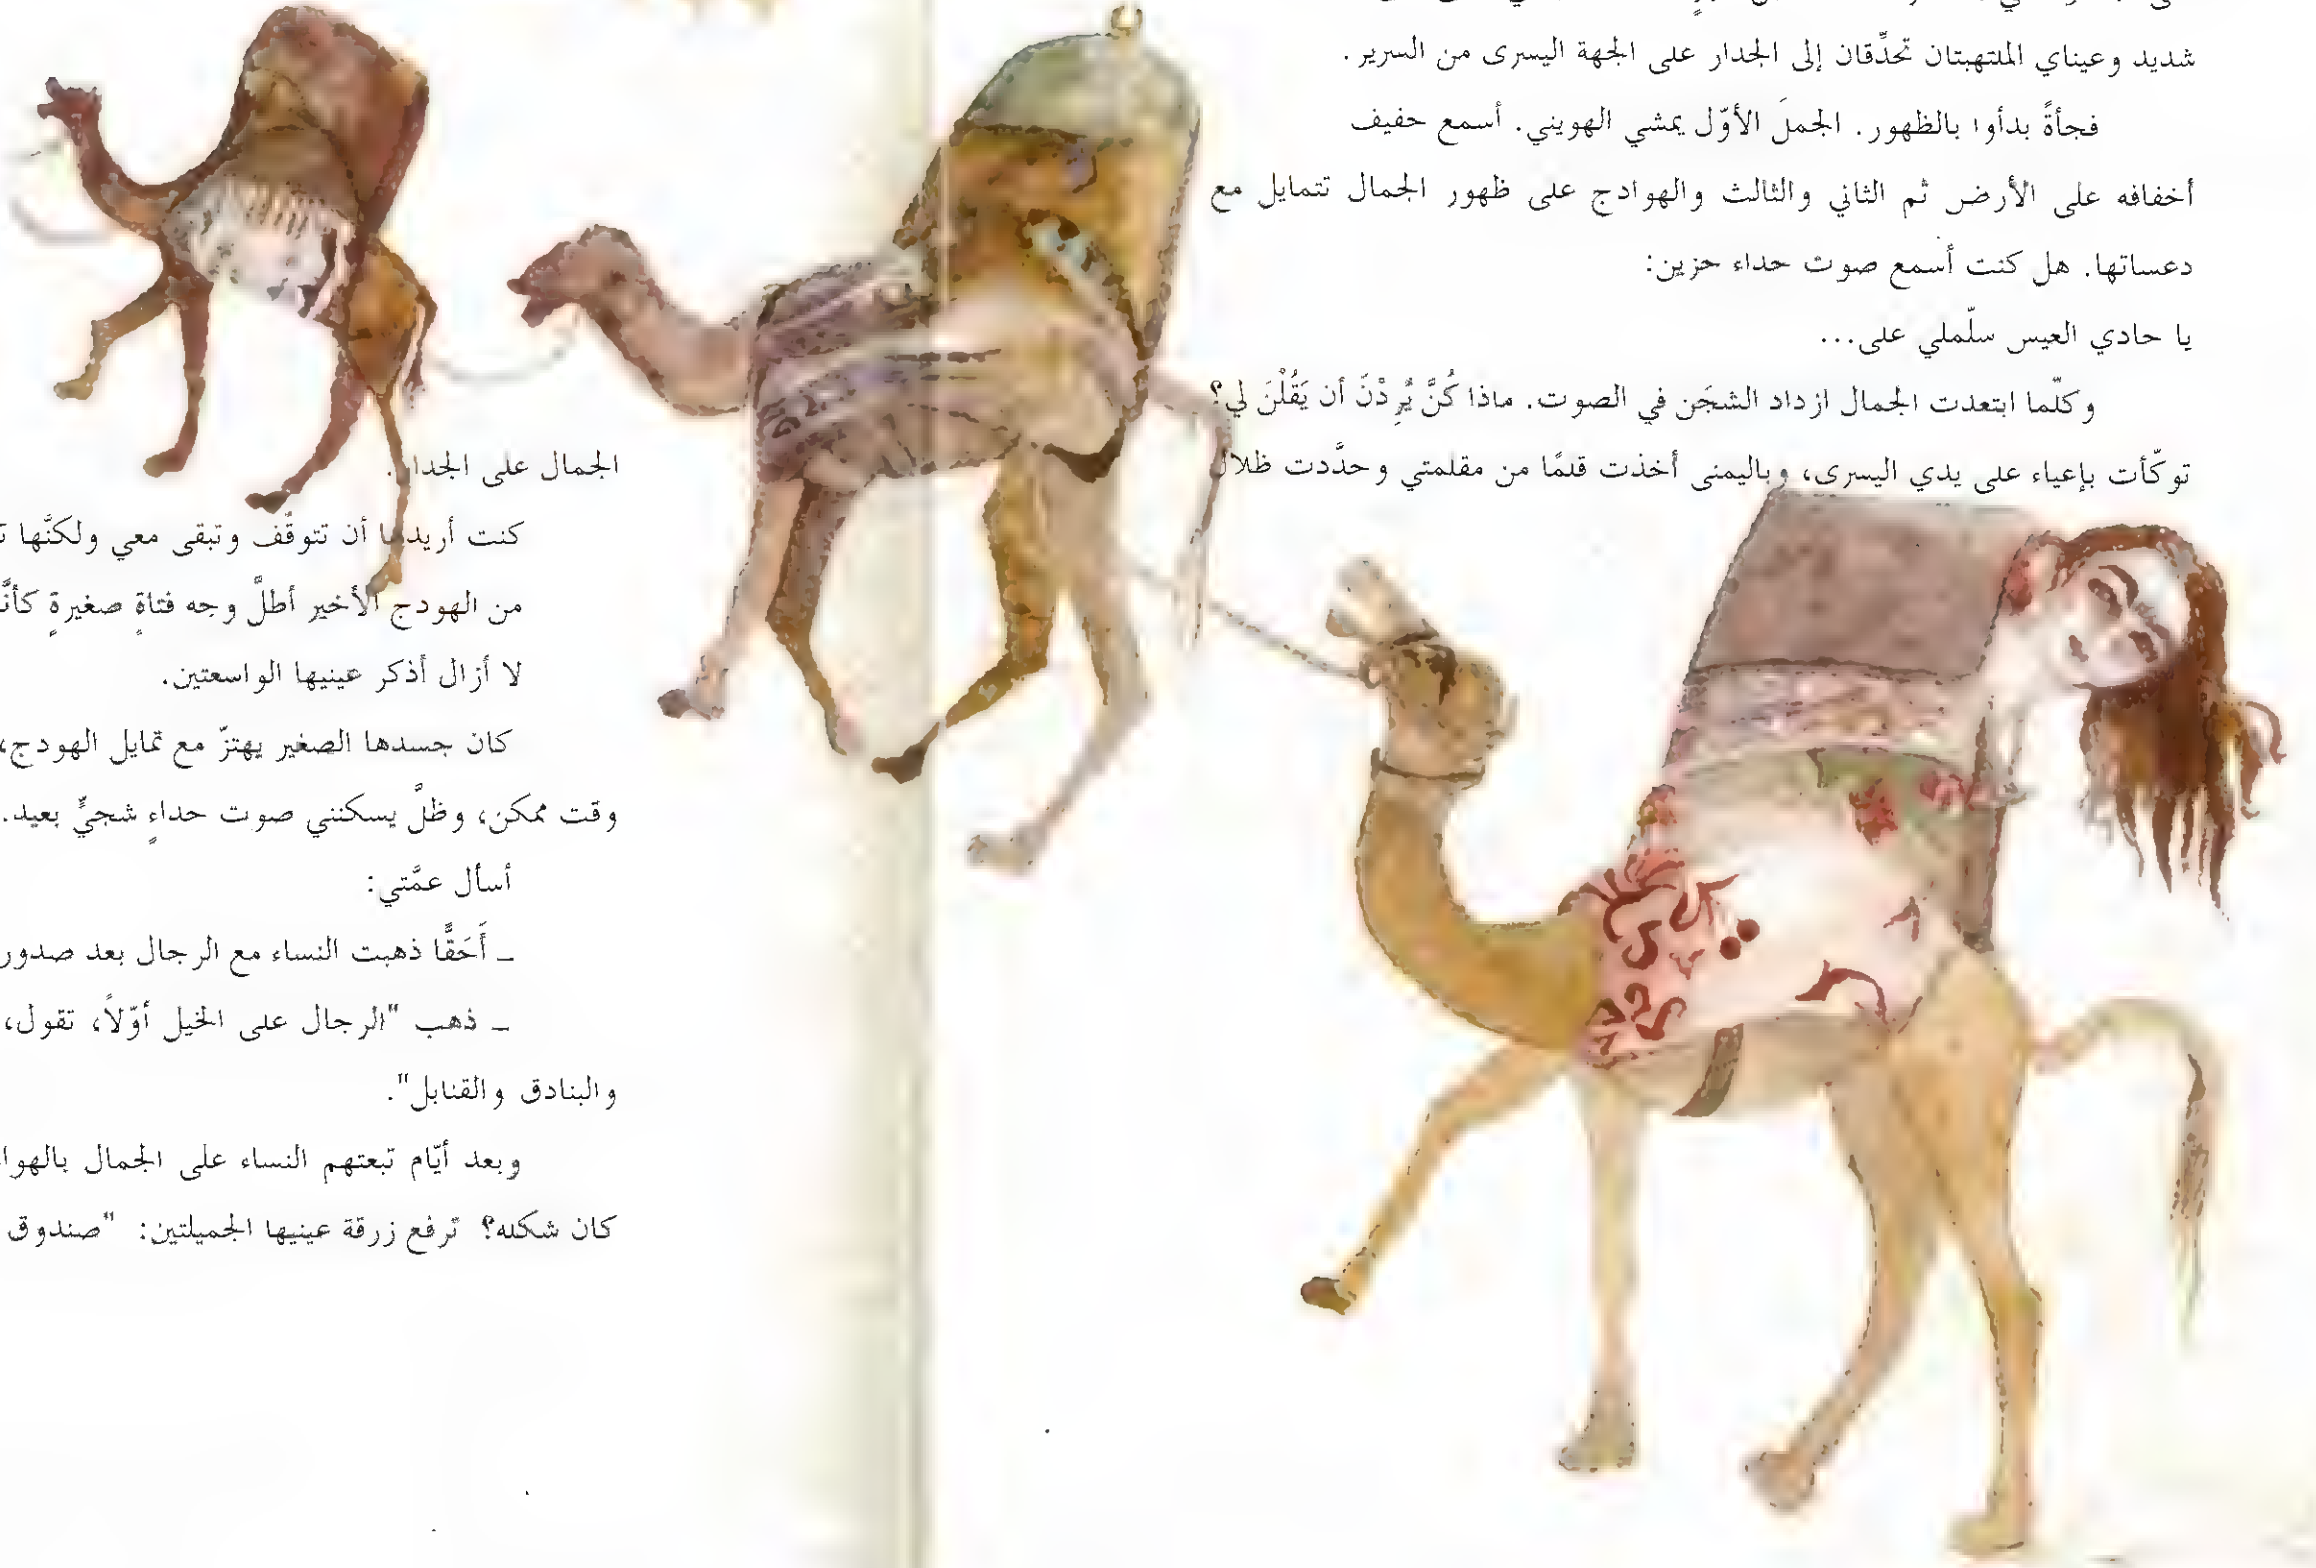 شديد وعيناي الملتهبتان تحدِّقان إلى الجدار على الجهة اليسرى من السرير.
فجأةً بدأوا بالظهور. الجملَ الأوّل يمشي الهويني. أسمع حفيف
أخفافه على الأرض ثم الثاني والثالث والهوادج على ظهور الجمال تتمايل مع
دعساتها. هل كنت أسمع صوت حداء حزين:
يا حادي العيس سلّملي على...
وكلّما ابتعدت الجمال ازداد الشجَن في الصوت. ماذا كُنَّ يُرِدْنَ أن يَقُلْنَ لي؟
توكّأت بإعياء على يدي اليسرى، وباليمنى أخذت قلمًا من مقلمتي وحدَّدت ظلال
الجمال على الجدار.
كنت أريدها أن تتوقّف وتبقى معي ولكنَّها
من الهودج الأخير أطلّ وجه فتاةٍ صغيرةٍ
لا أزال أذكر عينيها الواسعتين.
كان جسدها الصغير يهتزّ مع تمايل الهودج،
وقت ممكن، وظلّ يسكنني صوت حداءٍ شجيٍّ بعيد.
أسأل عمَّتي:
_ أَحَقًّا ذهبت النساء مع الرجال بعد صدور
_ ذهب "الرجال على الخيل أوّلاً، تقول،
والبنادق والقنابل".
وبعد أيّام تبعتهم النساء على الجمال
كان شكله؟ ترفع زرقة عينيها الجميلتين: "صندوق